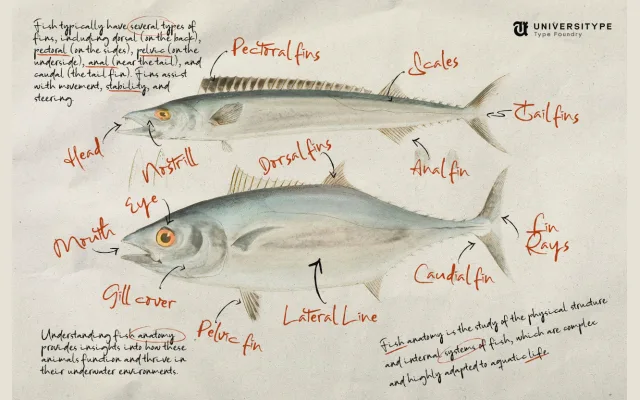 Fish typically have several types of
fins, including dorsal (on the back),
pectoral (on the sides), pelvic (on the
underside), anal (near the tail), and
caudal (the tail fin). Fins assist
with movement, stability, and
steering
UNIVERSITYPE
Type Foundry
Pectoral fins
Scales
Tail fins
Head
Nostrill
Dorsal fins
Anal fin
Eye
Mouth
Fin
Rays
Caudial fin
Gill cover
Pelvic fin
Lateral Line
Understanding fish anatomy
provides insights into how these
animals function and thrive in
their underwater environments.
Fish anatomy is the study of the physical structure
and internal systems of fish, which are complex
and highly adapted to aquatic life